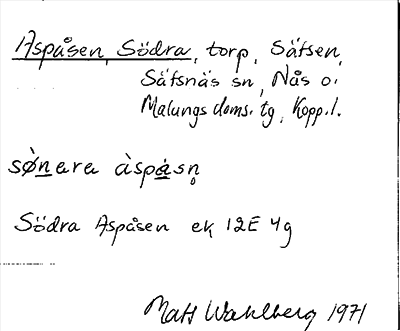 Aspåsen, Södra, torp, Säfsen,
Säfsnäs sn, Nås o.
Malungs doms. tg, Kopp.l.
sø̀nara àspåsn̥
Södra Aspåsen ek 12E 4g
Mats Wahlberg 1971